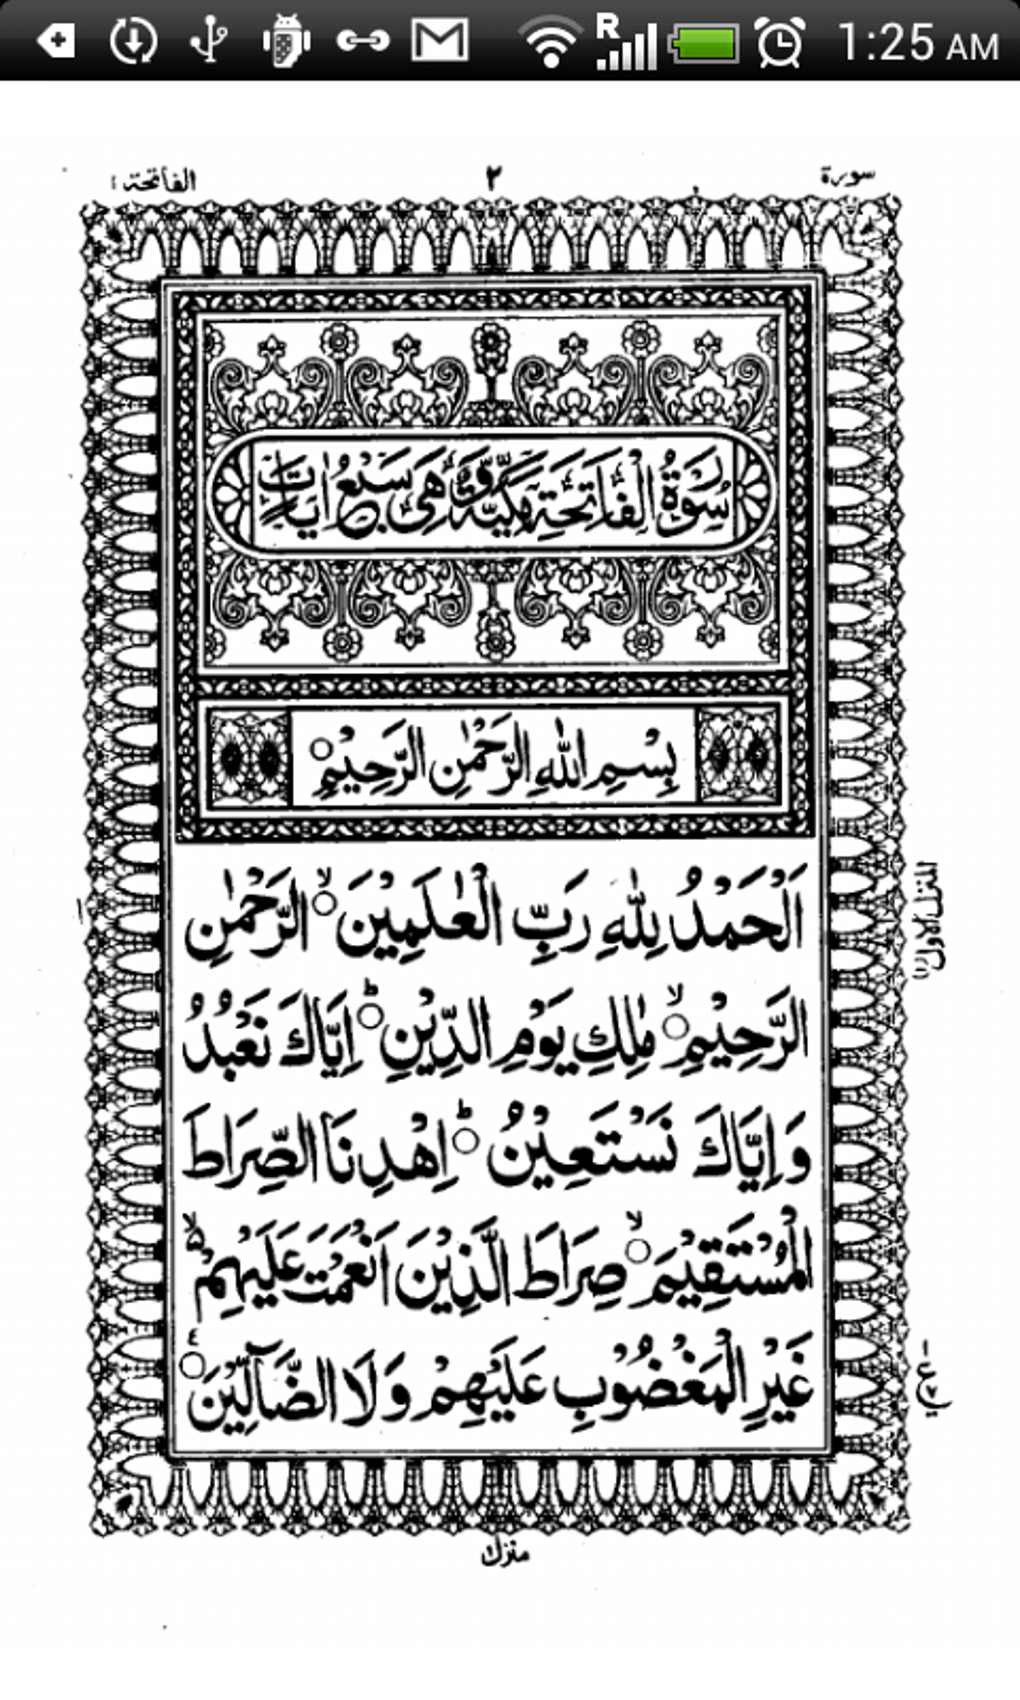 1:25 AM
R
سورة
٢
الفاتحة ١
سُوْرَةُ الْفَاتِحَةِ مَكِّيَّةٌ وَّهِىَ سَبْعُ اٰيَاتٍ
بِسْمِ اللّٰهِ الرَّحْمٰنِ الرَّحِيْمِ
اَلْحَمْدُ لِلّٰهِ رَبِّ الْعٰلَمِيْنَ ۙ الرَّحْمٰنِ
الرَّحِيْمِ ۙ مٰلِكِ يَوْمِ الدِّيْنِ ؕ اِيَّاكَ نَعْبُدُ
وَاِيَّاكَ نَسْتَعِيْنُ ؕ اِهْدِنَا الصِّرَاطَ
الْمُسْتَقِيْمَ ۙ صِرَاطَ الَّذِيْنَ اَنْعَمْتَ عَلَيْهِمْ ۙ
غَيْرِ الْمَغْضُوْبِ عَلَيْهِمْ وَلَا الضَّآلِّيْنَ
المنزل الاول (١)
منزل